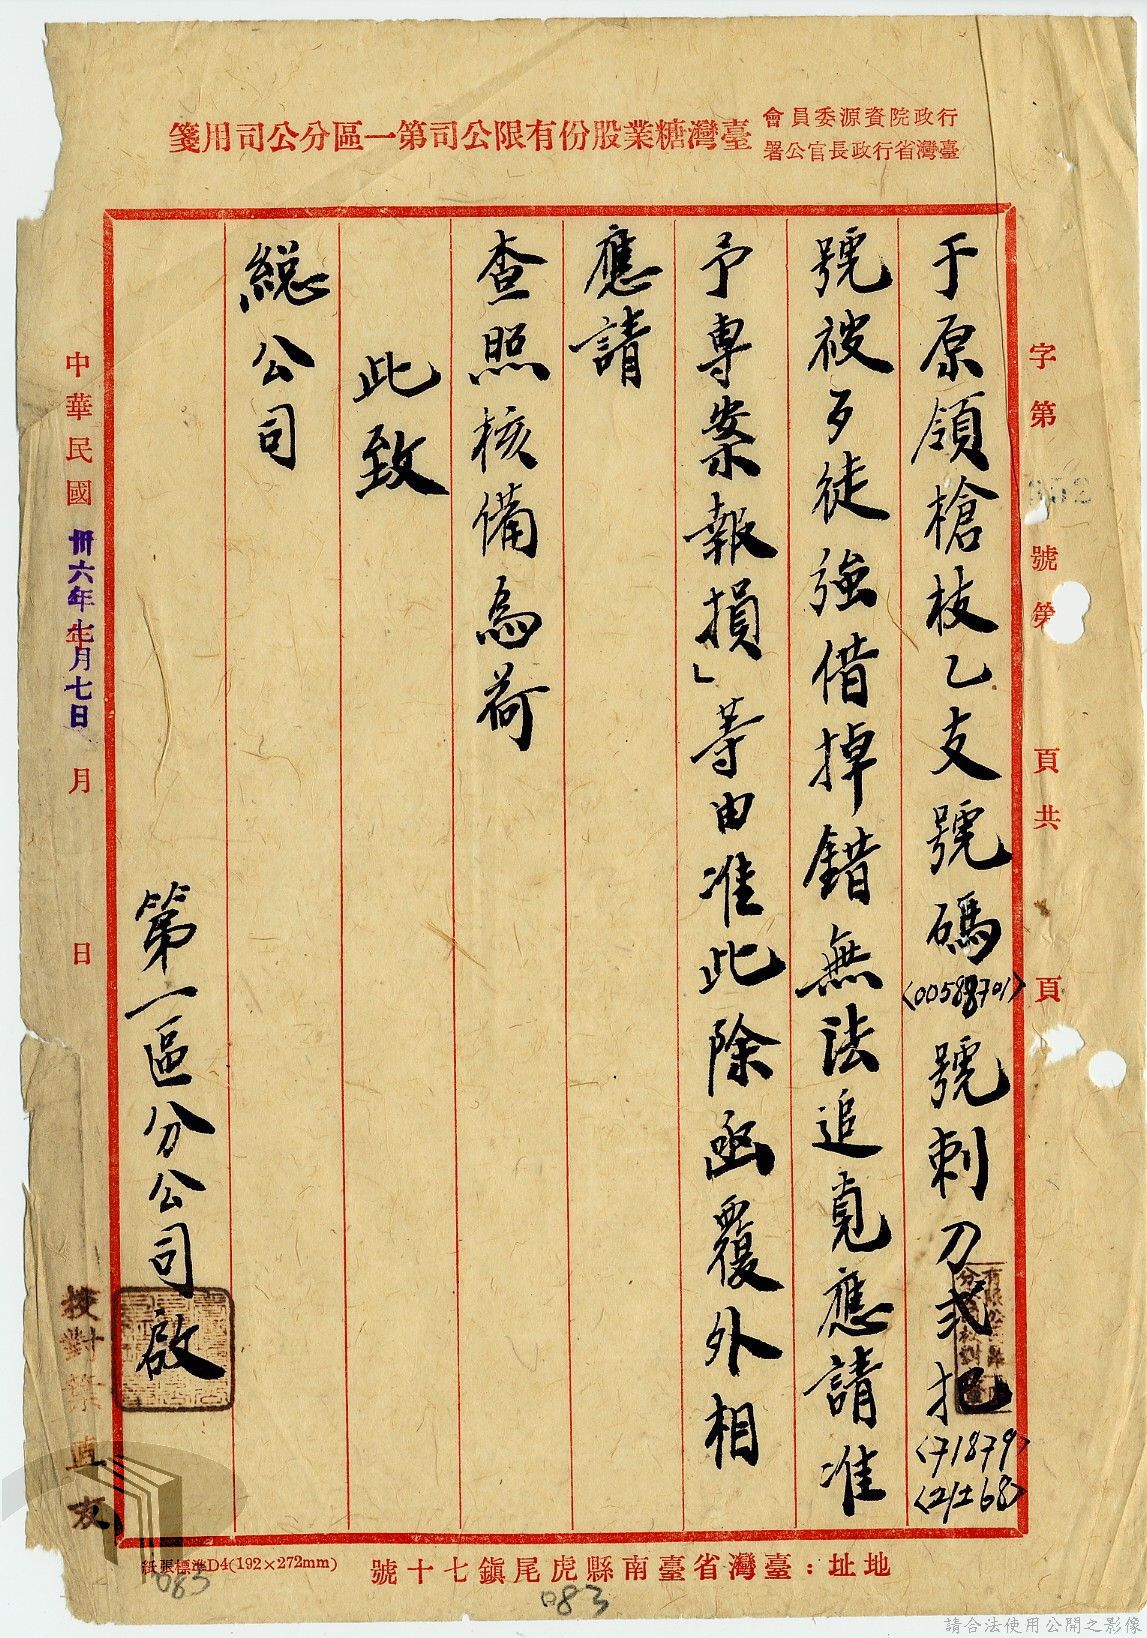 行政院資源委員會
臺灣省行政長官公署
臺灣糖業股份有限公司第一區分公司用箋
字第 號第 頁共 頁
于原領槍枝乙支號碼〈00588701〉號刺刀弍把〈71879〉
號被歹徒強借掉錯無法追覓應請准
予專案報損」等由准此除函覆外相
應請
查照核備為荷
此致
総公司
第一區分公司啟
中華民國 年 月 日
卅六年七月七日
校對 直友
地址：臺灣省臺南縣虎尾鎮七十號
紙張標準D4(192×272mm)
083
083
請合法使用公開之影像